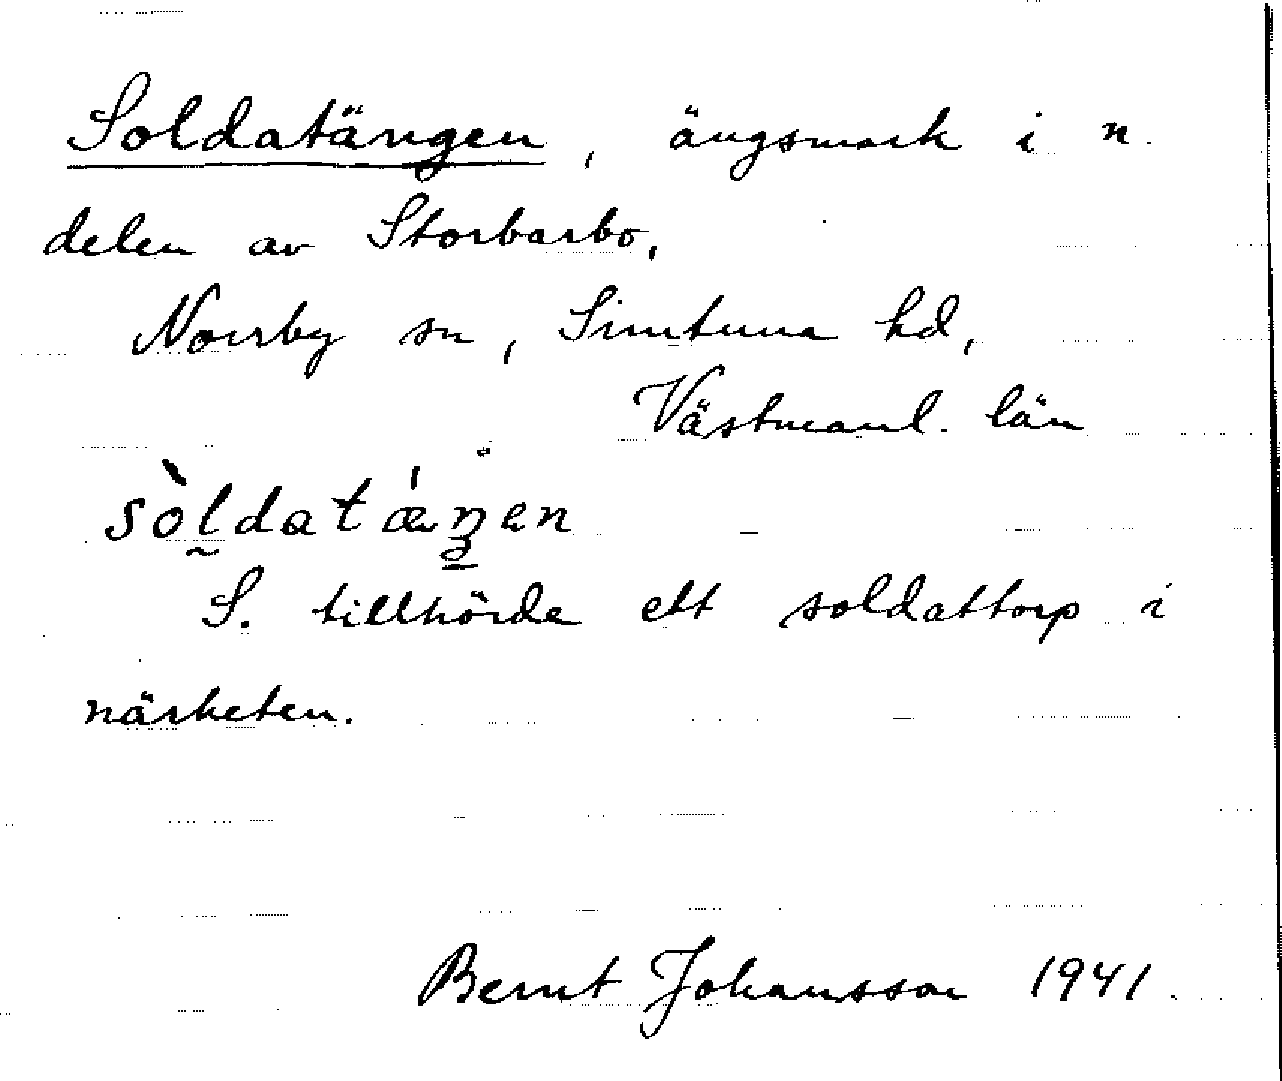 Soldatängen, ängsmark i n.
delen av Storbarbo,
Norrby sn, Simtuna hd,
Västmanl. län
sòl̰datǽŋen
S. tillhörde ett soldattorp i
närheten.
Bernt Johansson 1941.